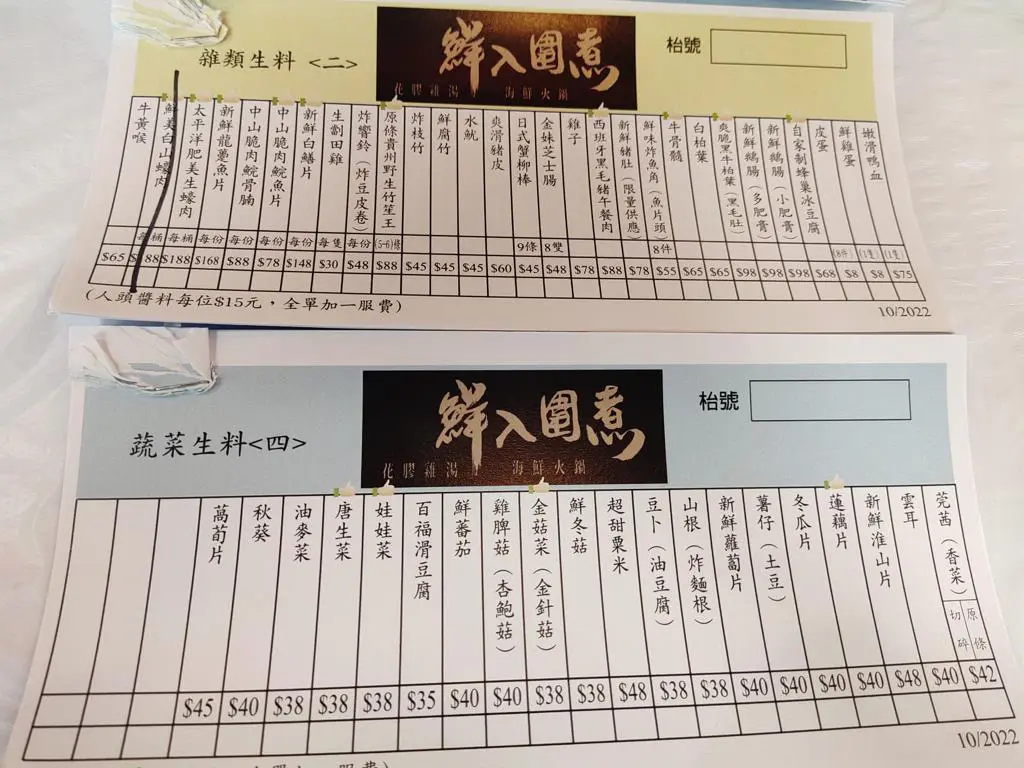 雜類生料 <二>
鮮入圍煮
花膠雞湯 海鮮火鍋
枱號
嫩滑鴨血
鮮雞蛋
皮蛋
自家制蜂巢冰豆腐
新鮮鵝腸(小肥膏)
新鮮鵝腸(多肥膏)
爽脆黑牛柏葉(黑毛肚)
白柏葉
牛骨髓
鮮味炸魚角(魚片頭)
新鮮豬肚(限量供應)
西班牙黑毛豬午餐肉
雞子
金妹芝士腸
日式蟹柳棒
爽滑豬皮
水魷
鮮腐竹
炸枝竹
原條貴州野生竹笙王
炸響鈴(炸豆皮卷)
生劏田雞
新鮮白鱔片
中山脆肉鯇魚片
中山脆肉鯇骨腩
新鮮龍躉魚片
太平洋肥美生蠔肉
鮮美白山蠔肉
牛黃喉
每桶 每桶 每份 每份 每份 每份 每隻 每份 (5-6)條 9條 8雙 8件 (8件) (1隻) (1隻)
$65 $188 $188 $168 $88 $78 $148 $30 $48 $88 $45 $45 $45 $60 $45 $48 $78 $88 $78 $55 $65 $65 $98 $98 $98 $68 $8 $8 $75
(人頭醬料每位$15元，全單加一服費)
10/2022
蔬菜生料<四>
鮮入圍煮
花膠雞湯 海鮮火鍋
枱號
莞茜(香菜)
原條
切碎
雲耳
新鮮淮山片
蓮藕片
冬瓜片
薯仔(土豆)
新鮮蘿蔔片
山根(炸麵根)
豆卜(油豆腐)
超甜粟米
鮮冬菇
金菇菜(金針菇)
雞脾菇(杏鮑菇)
鮮蕃茄
百福滑豆腐
娃娃菜
唐生菜
油麥菜
秋葵
萵荀片
$45 $40 $38 $38 $38 $35 $40 $40 $38 $38 $48 $38 $38 $40 $40 $40 $40 $48 $40 $42
10/2022